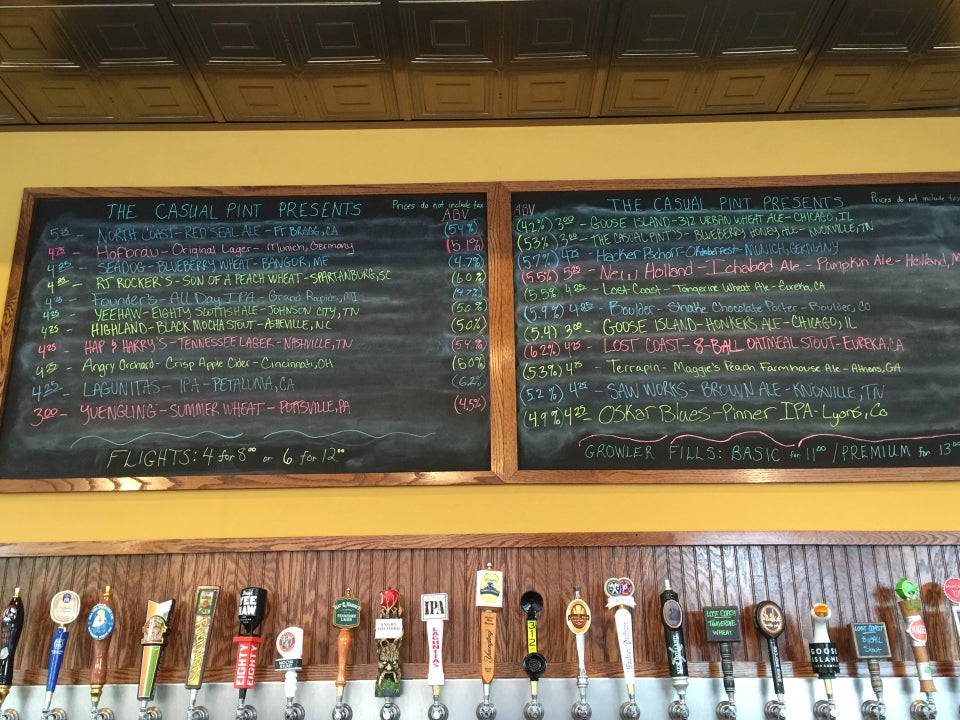 THE CASUAL PINT PRESENTS
Prices do not include tax
ABV
NORTH COAST-RED SEAL ALE - FT. BRAGG, CA (5.4%)
4.25 - Hofbrau-Original Lager-Munich, Germany (5.1%)
4.25 - SEADOG-BLUEBERRY WHEAT-BANGOR, ME (4.7%)
4.25 - RJ ROCKER'S-SON OF A PEACH WHEAT-SPARTANBURG, SC (6.0%)
4.25 - Founder's-All Day IPA-Grand Rapids, MI (4.7%)
4.25 - YEEHAW-EIGHTY SCOTTISH ALE-JOHNSON CITY, TN (5.0%)
4.25 - HIGHLAND-BLACK MOCHA STOUT-ASHEVILLE, NC (5.0%)
4.25 - HAP & HARRY'S-TENNESSEE LAGER-NASHVILLE, TN
4.25 - Angry Orchard-Crisp Apple Cider-Cincinnati, OH (5.0%)
4.25 - LAGUNITAS-IPA-PETALUMA, CA (6.2%)
3.00 - YUENGLING-SUMMER WHEAT-POTTSVILLE, PA (4.5%)
FLIGHTS: 4 for 8.00 or 6 for 12.00
THE CASUAL PINT PRESENTS
Prices do not include tax
ABV
(4.2%) 3.00 - GOOSE ISLAND-312 URBAN WHEAT ALE-CHICAGO, IL
(5.3%) 3.00 - THE CASUAL PINT'S-BLUEBERRY HONEY ALE-KNOXVILLE, TN
(5.7%) 4.25 - Hacker Pschorr-Oktoberfest-MUNICH, GERMANY
(5.5%) 5.25 - New Holland-Ichabod Ale-Pumpkin Ale-Holland, M
(5.5% 4.25 - Lost Coast-Tangerine Wheat Ale-Eureka, CA
(5.9%) 4.25 - Boulder-Shake Chocolate Porter-Boulder, Co
(5.4) 3.00 - GOOSE ISLAND-HONKER'S ALE-CHICAGO, IL
(6.2%) 4.25 - LOST COAST-8-BALL OATMEAL STOUT-EUREKA, CA
(5.3%) 4.25 - Terrapin-Maggie's Peach Farmhouse Ale-Athens, GA
(5.2%) 4.25 - SAW WORKS-BROWN ALE-KNOXVILLE, TN
(4.9%) 4.25 - OSKAR BLUES-Pinner IPA-Lyons, Co
GROWLER FILLS: BASIC for 11.00 / PREMIUM for 13.00
YEE HAW
EIGHTY
EIGHTY
MOCHA
ANGRY ORCHARD
IPA
LAGUNITAS
Yuengling
312
LOST COAST
TANGERINE
WHEAT
GOOSE ISLAND
LOST COAST
8 BALL
STOUT